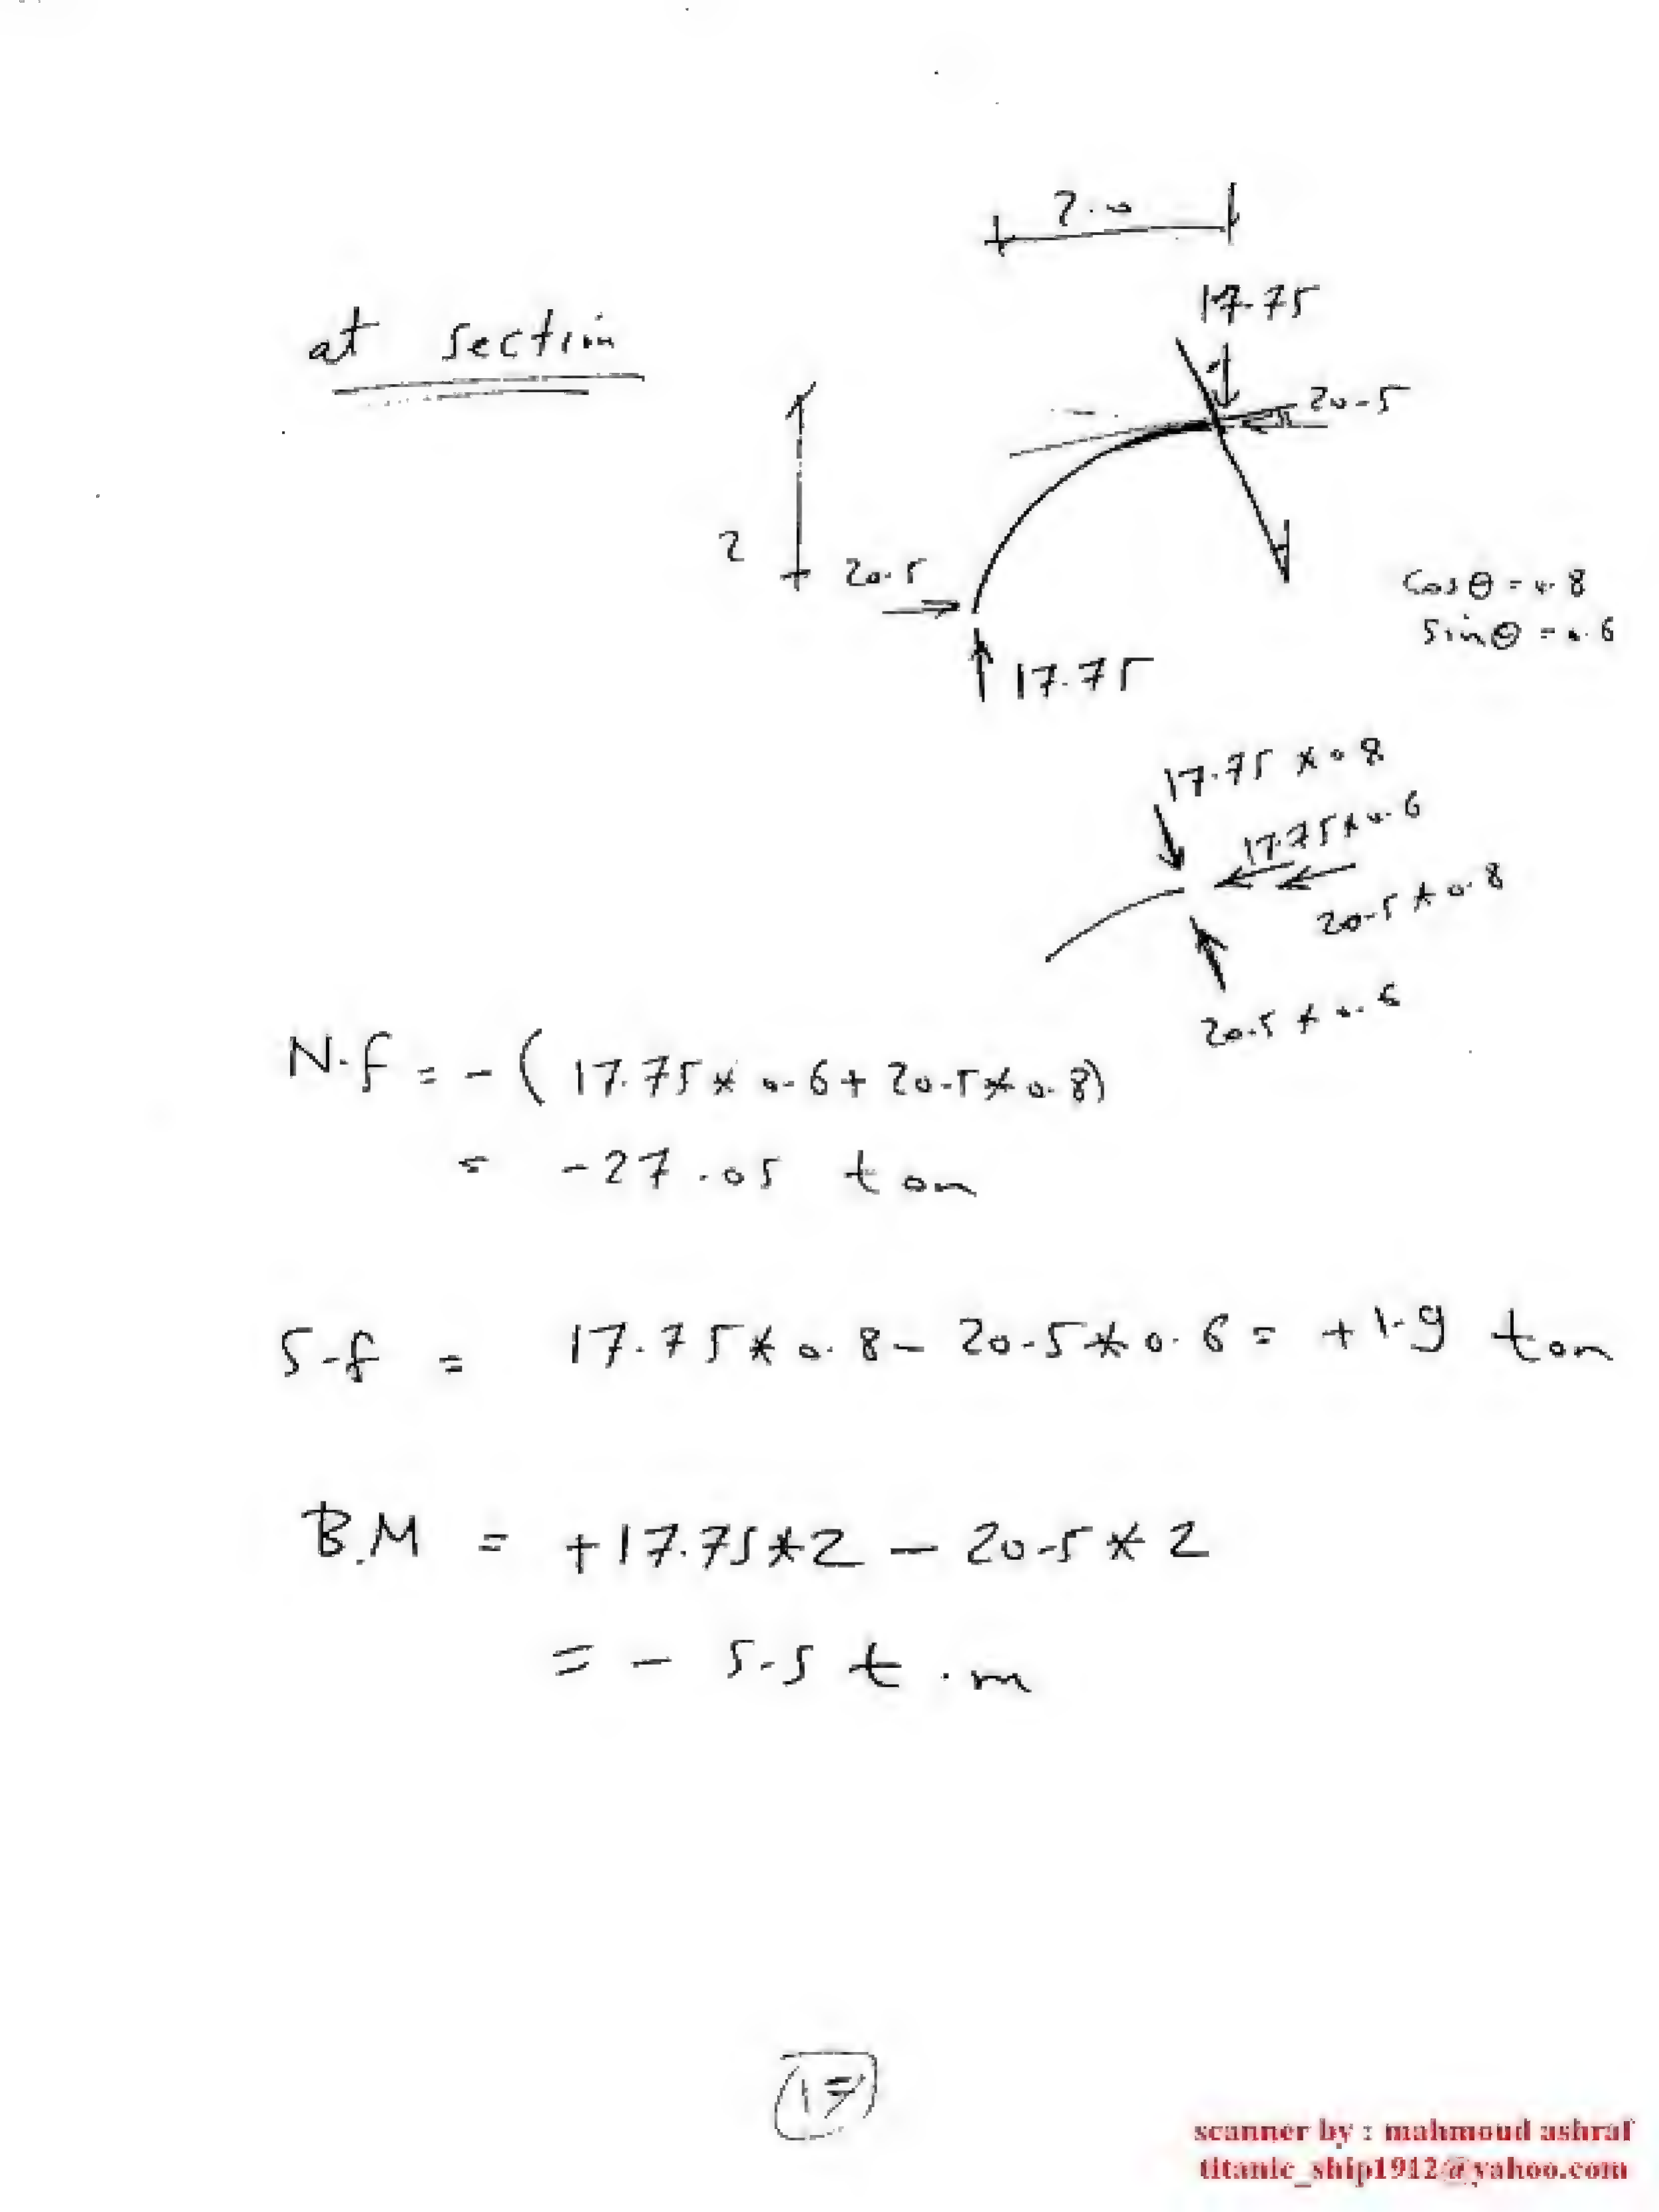 2.0
17.75
at section
20.5
2
20.5
cos θ = 0.8
sin θ = 0.6
17.75
17.75 * 0.8
17.75 * 0.6
20.5 * 0.8
20.5 * 0.6
N.f = - ( 17.75 * 0.6 + 20.5 * 0.8)
= -27.05 ton
S.f = 17.75 * 0.8 - 20.5 * 0.6 = +1.9 ton
B.M = +17.75 * 2 - 20.5 * 2
= - 5.5 t.m
17
scanner by : mahmoud ashraf
titanic_ship1912@yahoo.com